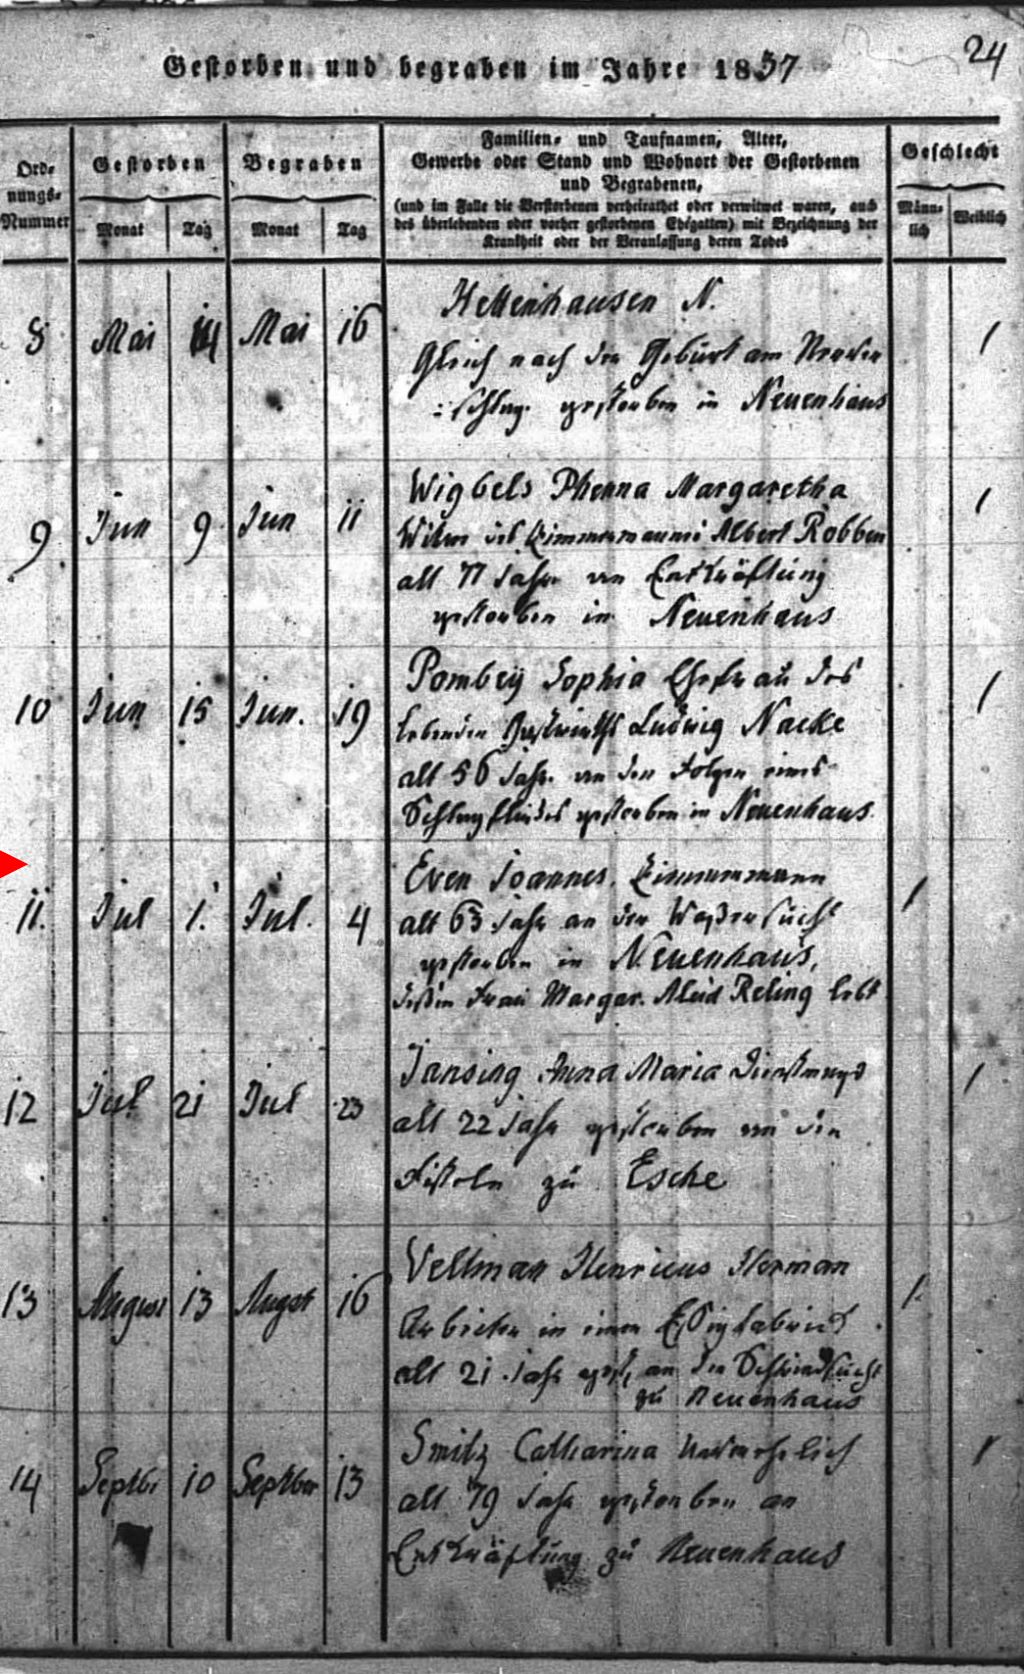 24
Gestorben und begraben im Jahre 1857
Ord-
nungs-
Nummer
Gestorben
Monat
Tag
Begraben
Monat
Tag
Familien- und Taufnamen, Alter,
Gewerbe oder Stand und Wohnort der Gestorbenen
und Begrabenen,
(und im Falle die Verstorbenen verheirathet oder verwitwet waren, auch
des überlebenden oder vorher gestorbenen Ehegatten) mit Bezeichnung der
Krankheit oder der Veranlassung deren Todes
Geschlecht
Männ-
lich
Weiblich
8 Mai 14 Mai 16 1
Hettenhausen N.
Gleich nach der Geburt am
gestorben in Neuenhaus
9 Jun 9 Jun 11 1
Wigbels Phenna Margaretha
Witwe des Zimmermanns Albert Robben
alt 77 Jahr an Entkräftung
gestorben in Neuenhaus
10 Jun 15 Jun. 19 1
Pombey Sophia Ehefrau des
lebenden Gastwirths Ludwig Nacke
alt 56 Jahr an den Folgen eines
Schlagflußes gestorben in Neuenhaus.
11. Jul 1. Jul. 4 1
Even Joannes, Zimmermann
alt 63 Jahr an der Waßersucht
gestorben in Neuenhaus,
deßen Frau Margar. Aleid Reling lebt
12 Jul 21 Jul 23 1
Jansing Anna Maria Dienstmagd
alt 22 Jahr gestorben an den
Fisteln zu Esche
13 August 13 Augst 16 1.
Veltman Henricus Herman
Arbeiter in einer Eßigfabrick
alt 21 Jahr gest. an der Schwindsucht
zu Neuenhaus
14 Septbr 10 Septber 13 1
Smitz Catharina unverehelich
alt 79 Jahr gestorben an
Entkräftung zu Neuenhaus